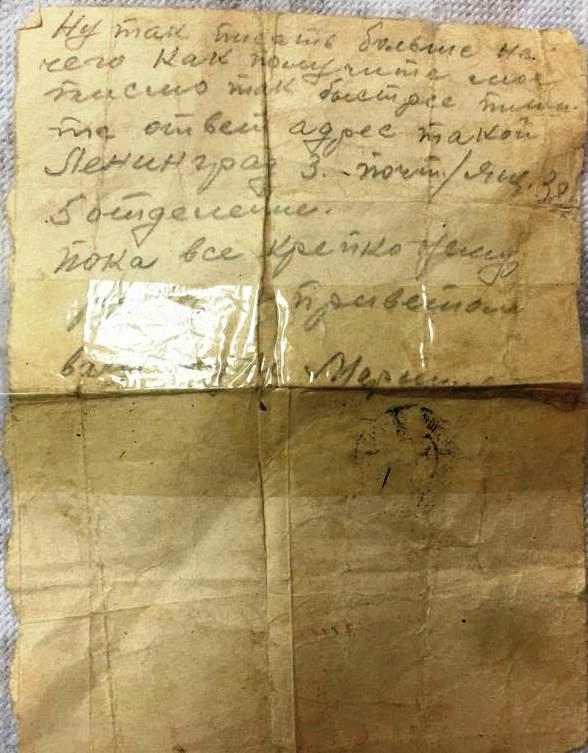 Ну так писать больше не
чего Как получите мое
писмо так быстрее пиши
те ответ адрес такой
Ленинград 3. почт/ящ. 38
5 отделение.
пока все крепко жму
приветом